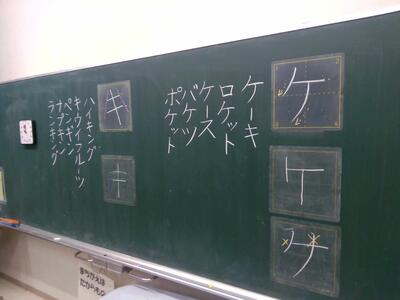 ケ
ケ
ケ
ケーキ
ロケット
ケース
バケツ
ポケット
キ
キ
ハイキング
キウイフルーツ
ペンギン
ナプキン
ランキング
まちがえは
たからもの